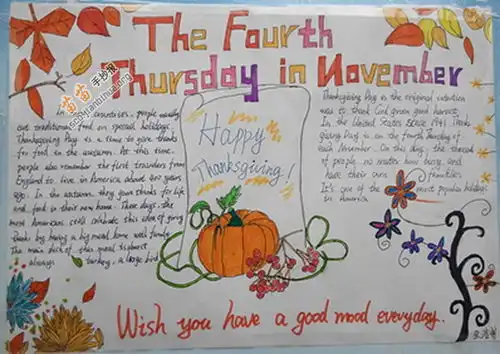 The Fourth
Thursday in November
In ... countries, people usually
eat traditional food on special holidays.
Thanksgiving Day is a time to give thanks
for food in the autumn. At this time,
people also remember the first travelers from
England to live in America about 400 years
ago. In the autumn, they gave thanks for life
and food in their new home. These days, the
most Americans still celebrate this idea of giving
thanks by having a big meal at home with family.
The main dish of this meal is almost
always turkey, a large bird
Happy
Thanksgiving!
Thanksgiving Day in the original intention
was to thank God given good harvest.
In the United States Since 1941, Thanks
giving Day is on the fourth Thursday of
each November. On this day, the thread
of people, no matter how busy, and
have their own families.
It's one of the most popular holidays
in America
Wish you have a good mood everyday..
苗苗手抄报